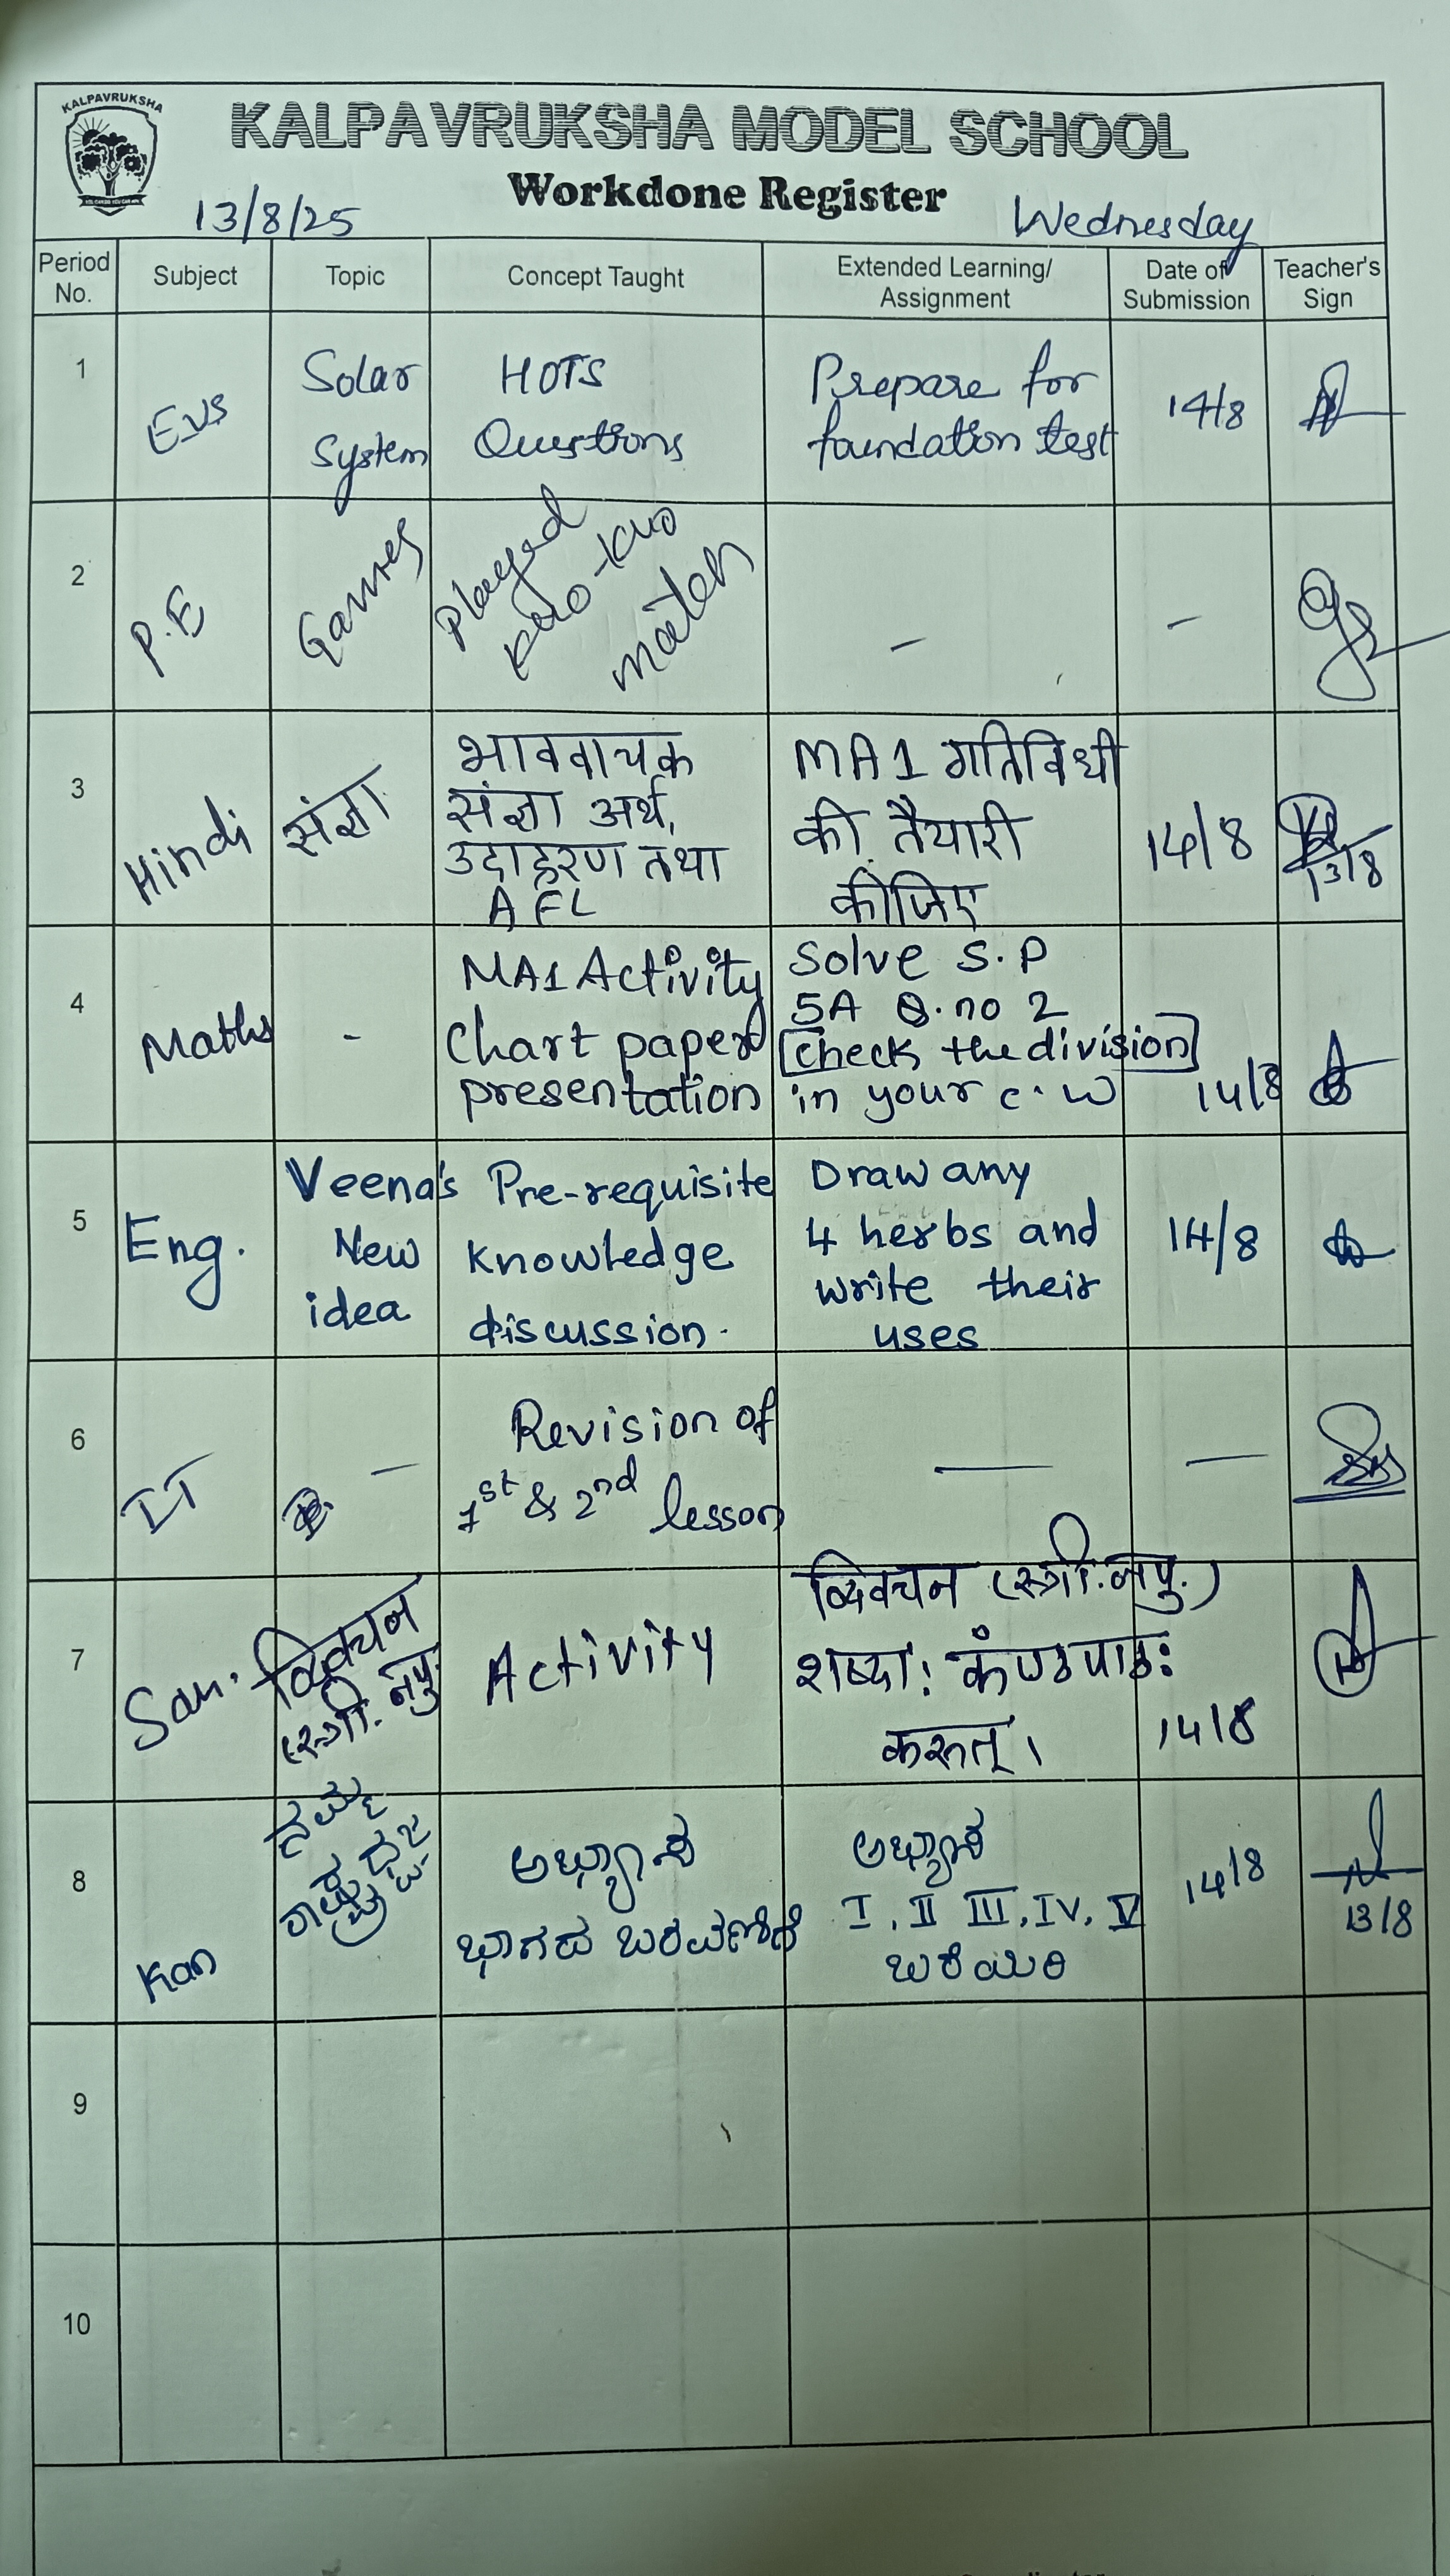 KALPAVRUKSHA
KALPAVRUKSHA MODEL SCHOOL
Workdone Register
13/8/25
Wednesday
Period No.
Subject
Topic
Concept Taught
Extended Learning/
Assignment
Date of
Submission
Teacher's
Sign
1
EVS
Solar
System
HOTS
Questions
Prepare for
foundation test
14/8
2
P.E
Games
Played
kho-kho
match
-
-
3
Hindi
संज्ञा
भाववाचक
संज्ञा अर्थ,
उदाहरण तथा
AFL
MA1 गतिविधी
की तैयारी
कीजिए
14/8
13/8
4
Maths
-
MA1 Activity
Chart paper
presentation
Solve S.P
5A Q.no 2
[Check the division]
in your c.w
14/8
5
Eng.
Veena's
New
idea
Pre-requisite
knowledge
discussion.
Draw any
4 herbs and
write their
uses
14/8
6
IT
-
Revision of
1st & 2nd lesson
-
-
7
San.
द्विवचन
(स्त्री. नपु.
Activity
द्विवचन (स्त्री.नपु.)
कंण्ठपाठः
14/8
8
Kan
ನಮ್ಮ
ರಾಷ್ಟ್ರಧ್ವಜ
ಅಭ್ಯಾಸ
ಭಾಗದ ಬರವಣಿಗೆ
ಅಭ್ಯಾಸ
I, II III, IV, V
ಬರೆಯಿರಿ
14/8
13/8
9
10